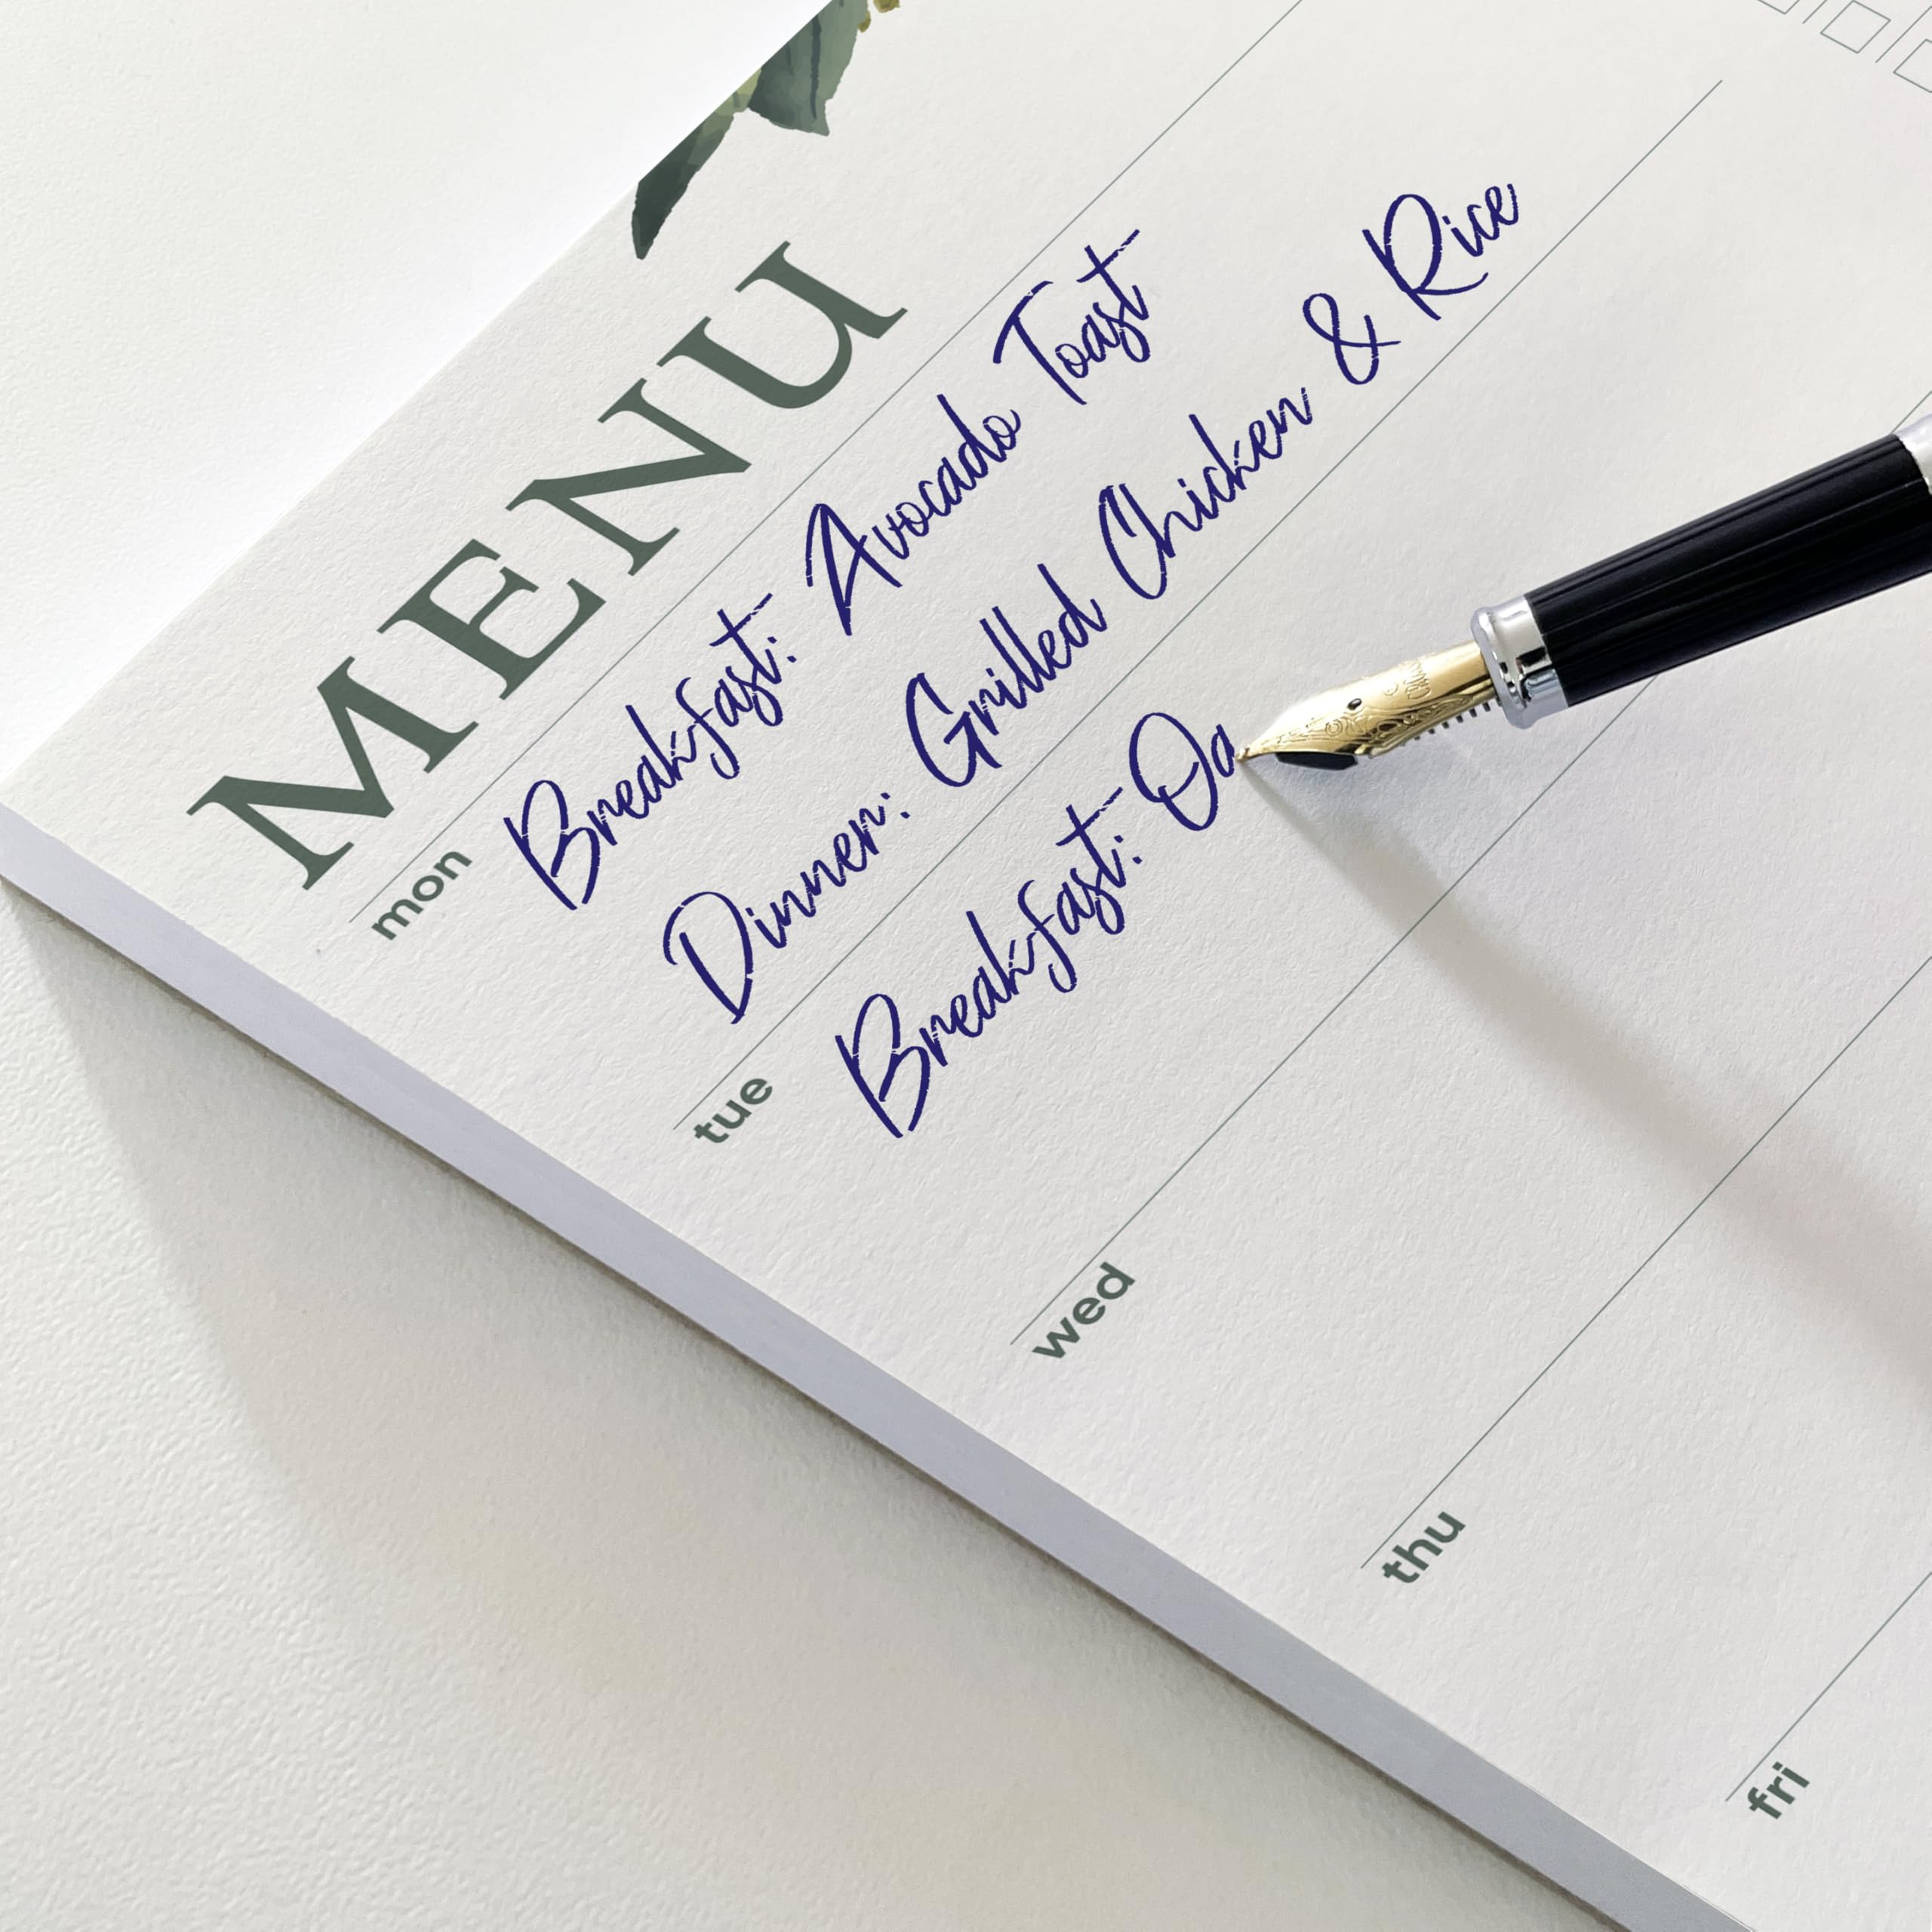 MENU
mon
Breakfast: Avocado Toast
Dinner: Grilled Chicken & Rice
tue
Breakfast: Oa
wed
thu
fri